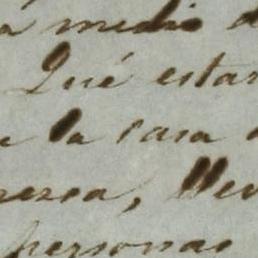 a medio d
Qué estar
e la casa
reza, llev
personas